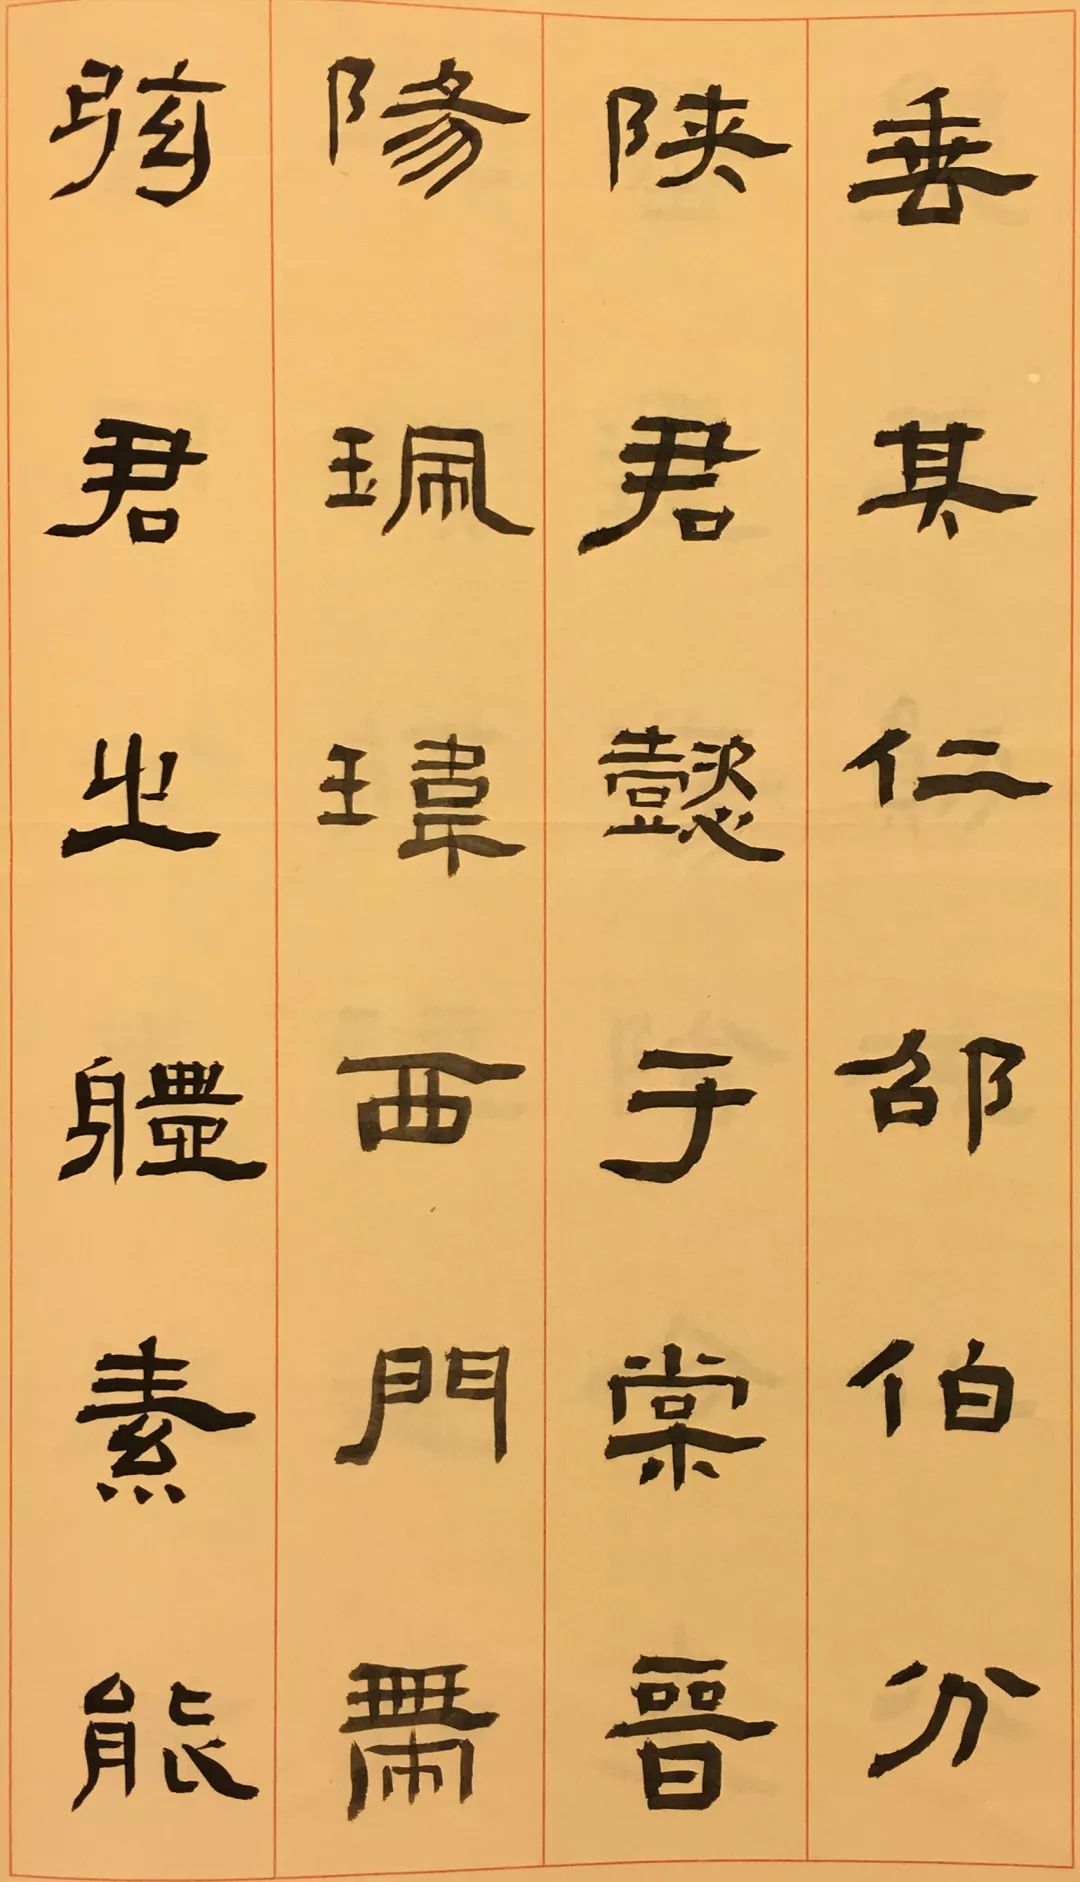 垂其仁邵伯分
陝君懿于棠晉
陽珮瑋西門帶
弦君之體素能